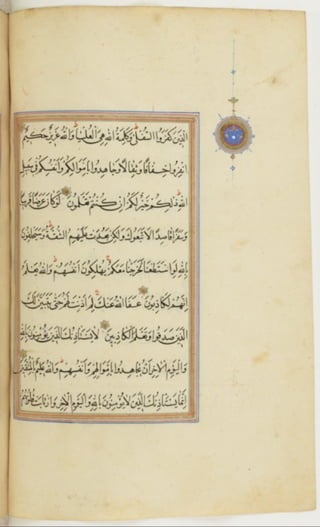 الَّذِينَ كَفَرُوا السُّفْلَى وَكَلِمَةُ اللهِ هِيَ الْعُلْيَا وَاللهُ عَزِيزٌ حَكِيمٌ
انْفِرُوا خِفَافًا وَثِقَالًا وَجَاهِدُوا بِأَمْوَالِكُمْ وَأَنْفُسِكُمْ فِي سَبِيلِ
اللهِ ذَلِكُمْ خَيْرٌ لَكُمْ إِنْ كُنْتُمْ تَعْلَمُونَ لَوْ كَانَ عَرَضًا قَرِيبًا
وَسَفَرًا قَاصِدًا لَاتَّبَعُوكَ وَلَكِنْ بَعُدَتْ عَلَيْهِمُ الشُّقَّةُ وَسَيَحْلِفُونَ
بِاللهِ لَوِ اسْتَطَعْنَا لَخَرَجْنَا مَعَكُمْ يُهْلِكُونَ أَنْفُسَهُمْ وَاللهُ يَعْلَمُ
إِنَّهُمْ لَكَاذِبُونَ عَفَا اللهُ عَنْكَ لِمَ أَذِنْتَ لَهُمْ حَتَّى يَتَبَيَّنَ لَكَ
الَّذِينَ صَدَقُوا وَتَعْلَمَ الْكَاذِبِينَ لَا يَسْتَأْذِنُكَ الَّذِينَ يُؤْمِنُونَ بِاللهِ
وَالْيَوْمِ الْآخِرِ أَنْ يُجَاهِدُوا بِأَمْوَالِهِمْ وَأَنْفُسِهِمْ وَاللهُ عَلِيمٌ بِالْمُتَّقِينَ
إِنَّمَا يَسْتَأْذِنُكَ الَّذِينَ لَا يُؤْمِنُونَ بِاللهِ وَالْيَوْمِ الْآخِرِ وَارْتَابَتْ قُلُوبُهُمْ